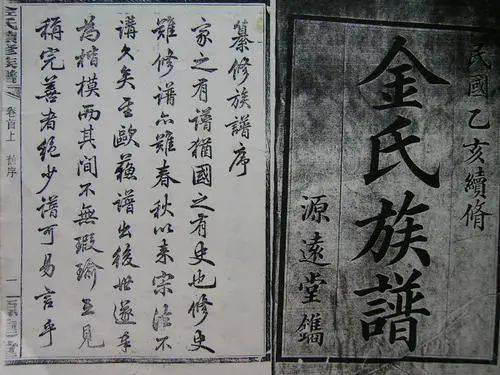 民國乙亥續脩
金氏族譜
源遠堂鐫
纂修族譜序
家之有譜猶國之有史也修史
難修譜亦難春秋以來宗法不
講久矣至歐蘓譜出後世遂奉
為楷模而其間不無瑕瑜互見
稱完善者絕少譜可易言乎
氏續修族譜 卷首上 序 一